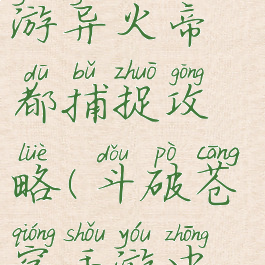 游异火帝
dū bǔ zhuō gōng
都捕捉攻
lüè dǒu pò cāng
略(斗破苍
qióng shǒu yóu zhōng
穹手游中